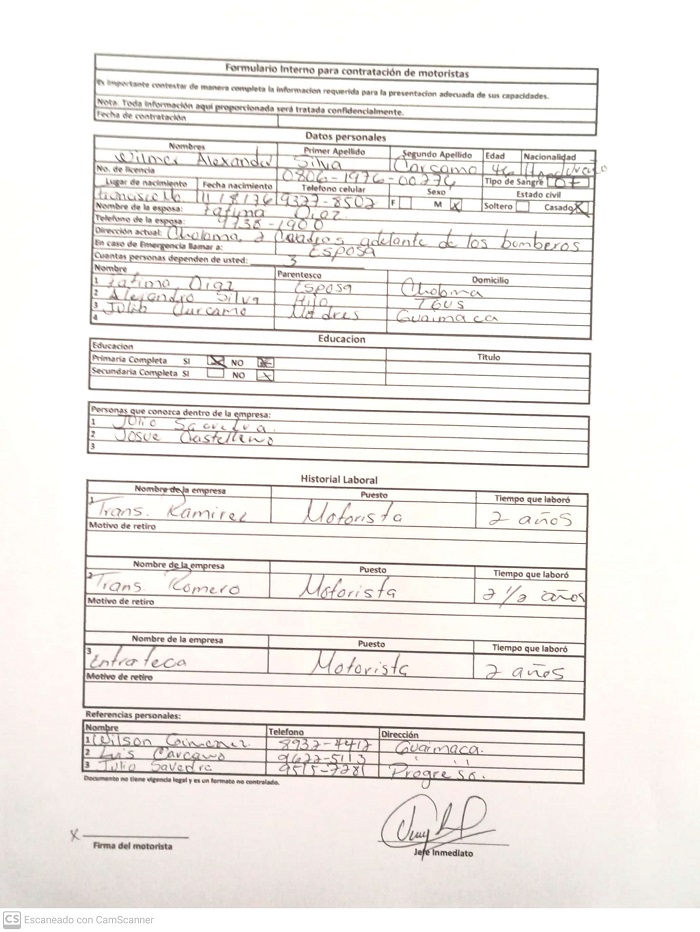 Formulario Interno para contratación de motoristas
Es importante contestar de manera completa la informacion requerida para la presentacion adecuada de sus capacidades.
Nota. Toda información aquí proporcionada será tratada confidencialmente.
Fecha de contratación
Datos personales
Nombres Primer Apellido Segundo Apellido Edad Nacionalidad
Wilmer Alexander Silva Carcamo 46 Hondureño
No. de licencia 0806-1976-00276 Tipo de Sangre O+
Lugar de nacimiento Fecha nacimiento Telefono celular Sexo Estado civil
11/8/76 9337-8502 F M X Soltero Casado X
Nombre de la esposa: Fatima Diaz
Telefono de la esposa: 9738-1900
Dirección actual: Choloma, 2 adelante de los bomberos
En caso de Emergencia llamar a: Esposa
Cuantas personas dependen de usted: 3
Nombre Parentesco Domicilio
1 Fatima Diaz Esposa Choloma
2 Alejandro Silva Hijo Tgus
3 Carcamo Madres Guaimaca
4
Educacion
Educacion Titulo
Primaria Completa SI X NO X
Secundaria Completa SI NO X
Personas que conozca dentro de la empresa:
1 Julio
2 Josue Castellano
3
Historial Laboral
Nombre de la empresa Puesto Tiempo que laboró
1 Trans. Ramirez Motorista 2 años
Motivo de retiro
Nombre de la empresa Puesto Tiempo que laboró
2 Trans. Romero Motorista 2 1/2 años
Motivo de retiro
Nombre de la empresa Puesto Tiempo que laboró
3 Entrateca Motorista 2 años
Motivo de retiro
Referencias personales:
Nombre Telefono Dirección
1 Wilson 8932-4412 Guaimaca.
2 Luis Carcamo 9622-5113 " "
3 Julio Savedra 9515-7281 Progreso.
Documento no tiene vigencia legal y es un formato no controlado.
X
Firma del motorista
Jefe Inmediato
CS Escaneado con CamScanner